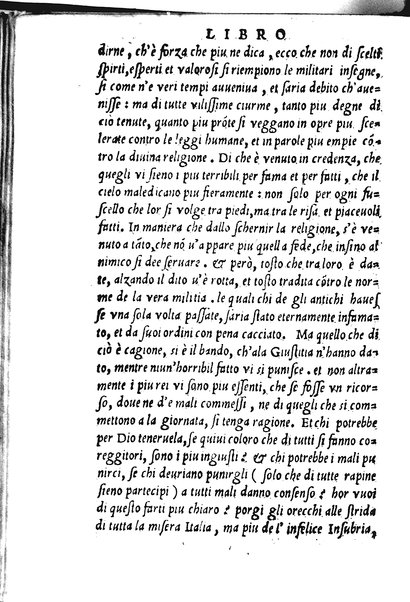 LIBRO
dirne, ch'è forza che piu ne dica, ecco che non di scelti
spirti, esperti et valorosi si riempiono le militari insegne,
si come n'e veri tempi aueniua, et saria debito ch'aue-
nisse : ma di tutte vilissime ciurme, tanto piu degne di
ciò tenute, quanto piu prõte si veggano in opre piu sce-
lerate contro le leggi humane, et in parole piu empie cõ-
tro la diuina religione. Di che è venuto in credenza, che
quegli vi sieno i piu terribili per fama et per fatti, che il
cielo maledicano piu fieramente : non solo per ogni fu-
scello che lor si volge tra piedi, ma tra le risa et piaceuoli
fatti. In maniera che dallo schernir la religione, s'è ve-
nuto a tãto, che nõ u'appare piu quella fede, che insino al
nimico si dee seruare. & però, tosto che tra loro è da-
te, alzando il dito u'è rotta, et tosto tradita cõtro le nor-
me de la vera militia. le quali chi de gli antichi haues-
se vna sola volta passate, saria stato eternamente infama-
to, et da suoi ordini con pena cacciato. Ma quello che di
ciò è cagione, si è il bando, ch'ala Giustitia n'hanno da-
to, mentre niun'horribil fatto vi si punisce. et non altra-
mente i piu rei vi sono piu essenti, che se fosse vn ricor-
so, doue ne d'e mali commessi, ne di quegli che si com-
mettono a la giornata, si tenga ragione. Et chi potrebbe
per Dio teneruela, se quiui coloro che di tutti si fanno co-
reggitori, sono i piu ingiusti ? & chi potrebbe i mali pu-
nirci, se chi deuriano punirgli ( solo che di tutte rapine
sieno partecipi ) a tutti mali danno consenso ? hor vuoi
di questo farti piu chiaro ? porgi gli orecchi alle strida
di tutta la misera Italia, ma piu de l'infelice Insubria,